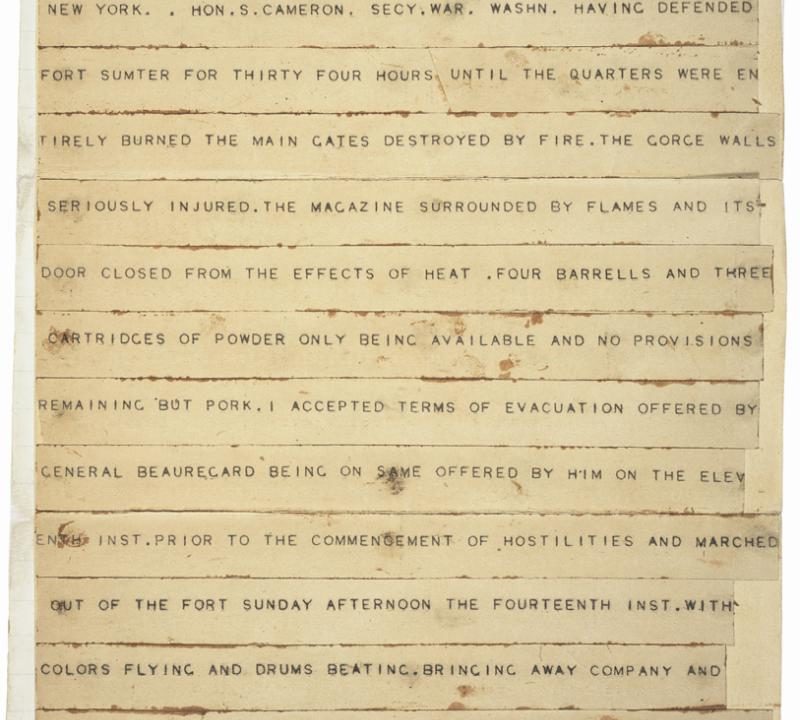 NEW YORK. . HON.S.CAMERON. SECY.WAR. WASHN. HAVING DEFENDED
FORT SUMTER FOR THIRTY FOUR HOURS UNTIL THE QUARTERS WERE EN
TIRELY BURNED THE MAIN GATES DESTROYED BY FIRE.THE GORGE WALLS
SERIOUSLY INJURED.THE MAGAZINE SURROUNDED BY FLAMES AND ITS
DOOR CLOSED FROM THE EFFECTS OF HEAT .FOUR BARRELLS AND THREE
CARTRIDGES OF POWDER ONLY BEING AVAILABLE AND NO PROVISIONS
REMAINING BUT PORK.I ACCEPTED TERMS OF EVACUATION OFFERED BY
GENERAL BEAUREGARD BEING ON SAME OFFERED BY HIM ON THE ELEV
ENTH INST.PRIOR TO THE COMMENCEMENT OF HOSTILITIES AND MARCHED
OUT OF THE FORT SUNDAY AFTERNOON THE FOURTEENTH INST.WITH
COLORS FLYING AND DRUMS BEATING.BRINGING AWAY COMPANY AND